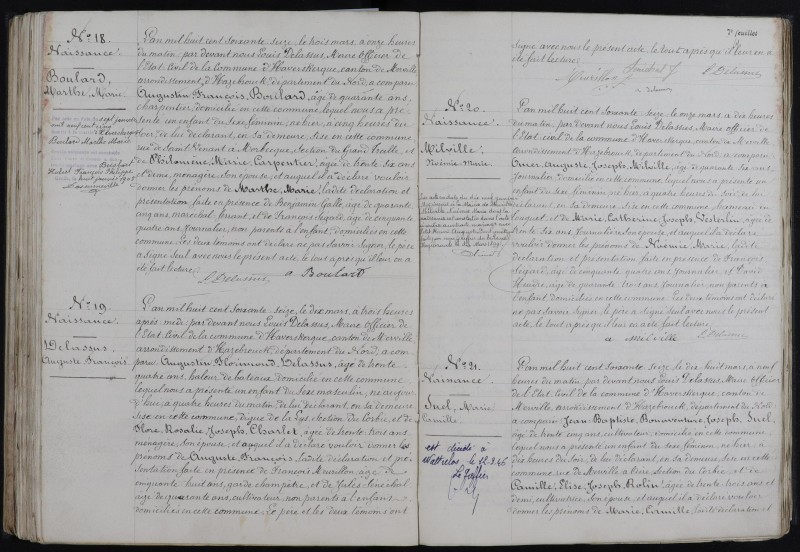 N° 18.
Naissance.
Boulard,
Marthe Marie
Boulard Marthe Marie
L'an mil huit cent soixante seize, le trois mars, à onze heures
du matin, par devant nous Louis Delassus, Maire officier de
l'Etat Civil de la Commune d'Haverskerque, canton de Merville
arrondissement d'Hazebrouck, département du Nord, a comparu
Augustin François, Boulard, âgé de quarante ans,
charpentier, domicilié en cette commune, lequel nous a pré-
senté un enfant du sexe féminin, né hier, à cinq heures du
soir, de lui déclarant, en sa demeure, sise en cette commune,
rue de Saint Venant à Morbecque, Section du Grand
et de Philomène, Marie, Carpentier, âgée de trente six ans
et demi, ménagère, son épouse, et auquel il a déclaré vouloir
donner les prénoms de Marthe, Marie, ladite déclaration et
présentation faite en présence de Benjamin Galle, âgé de quarante
cinq ans, maréchal ferrant, et de François Ségard, âgé de cinquante
quatre ans, journalier, non parents à l'enfant, domiciliés en cette
commune. Les deux témoins ont déclaré ne pas savoir signer, le père
a signé seul avec nous le présent acte, le tout après qu'il leur en a
été fait lecture.
L Delassus a Boulard
N° 19
Naissance.
Delassus,
Auguste François.
L'an mil huit cent soixante seize, le dix mars, à trois heures
après midi, par devant nous Louis Delassus, Maire officier de
l'Etat Civil de la Commune d'Haverskerque, canton de Merville,
arrondissement d'Hazebrouck, département du Nord, a com-
paru Augustin Florimond, Delassus, âgé de trente
quatre ans, haleur de bateaux, domicilié en cette commune
lequel nous a présenté un enfant du sexe masculin, né aujour-
d'hui, à quatre heures du matin, de lui déclarant, en sa demeure
sise en cette commune, digue de la Lys, Section du Corbie, et de
Flore, Rosalie, Joseph, âgée de trente trois ans
ménagère, son épouse, et auquel il a déclaré vouloir donner les
prénoms de Auguste, François, ladite déclaration et pré-
sentation faite en présence de François Meurillon, âgé de
cinquante huit ans, garde champêtre, et de Jules
âgé de quarante ans, cultivateur, non parents à l'enfant,
domiciliés en cette commune. Le père et les deux témoins ont
7e feuillet
signé avec nous le présent acte, le tout après qu'il leur en a
été fait lecture.
Meurillon L Delassus
a Delassus
N° 20.
Naissance.
Milville,
Noémie Marie
L'an mil huit cent soixante seize, le onze mars, à dix heures
du matin, par devant nous Louis Delassus, Maire officier de
l'Etat Civil de la commune d'Haverskerque, canton de Merville
arrondissement d'Hazebrouck, département du Nord, a comparu
Omer, Auguste, Joseph, Milville, âgé de quarante six ans,
journalier, domicilié en cette commune, lequel nous a présenté un
enfant du sexe féminin, né hier, à quatre heures du soir, de lui
déclarant, en sa demeure, sise en cette commune,
et de Marie, Catherine, Joseph, âgée de
trente six ans, journalière, son épouse, et auquel il a déclaré
vouloir donner les prénoms de Noémie, Marie, ladite
déclaration et présentation faite en présence de François
Ségard, âgé de cinquante quatre ans, journalier, et
âgé de quarante trois ans, journalier, non parents à
l'enfant, domiciliés en cette commune. Les deux témoins ont déclaré
ne pas savoir signer, le père a signé seul avec nous le présent
acte, le tout après qu'il leur en a été fait lecture.
a milville L Delassus
N° 21.
Naissance.
Suel, Marie
Camille.
est décédée à
Wattrelos, le 12.3.46
Le Greffier
L'an mil huit cent soixante seize, le dix huit mars, à neuf
heures du matin, par devant nous Louis Delassus, Maire officier
de l'Etat Civil de la commune d'Haverskerque, canton de
Merville, arrondissement d'Hazebrouck, département du Nord
a comparu Jean Baptiste, Bonaventure, Joseph, Suel,
âgé de trente cinq ans, cultivateur, domicilié en cette commune,
lequel nous a présenté un enfant du sexe féminin, né hier, à
dix heures du soir, de lui déclarant, en sa demeure, sise en cette
commune, rue de Merville à Aire, Section du Corbie, et de
Camille, Elise, Joseph, Rolin, âgée de trente trois ans et
demi, cultivatrice, son épouse, et auquel il a déclaré vouloir
donner les prénoms de Marie, Camille, ladite déclaration et